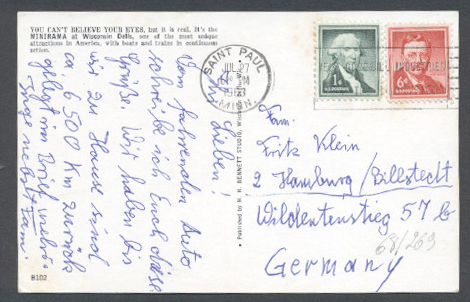 YOU CAN'T BELIEVE YOUR EYES, but it is real. It's the
MINIRAMA at Wisconsin Dells, one of the most unique
attractions in America, with boats and trains in continuous
action.
Ihr Lieben!
Vom fahrenden Auto
schreibe ich Euch diese
Grüße. Wir haben bis
wir zu Hause sind
ca 6500 Km zurück
gelegt im Brief mehr.
nebst Fam.
B102
Published by H. H. BENNETT STUDIO,
SAINT PAUL
JUL 27
PM
MINN.
1¢
U.S. POSTAGE
6¢
Fam.
Fritz Klein
2 Hamburg/Billstedt
Wildentenstieg 57 b
68/269
Germany